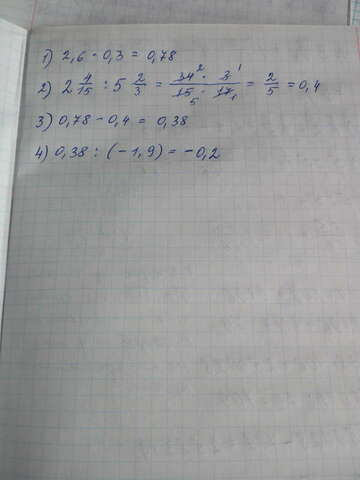 1) 2,6 · 0,3 = 0,78
2) 2 4/15 : 5 2/3 = 34 2 · 3 1 / 15 5 · 17 1 = 2/5 = 0,4
3) 0,78 - 0,4 = 0,38
4) 0,38 : (-1,9) = -0,2